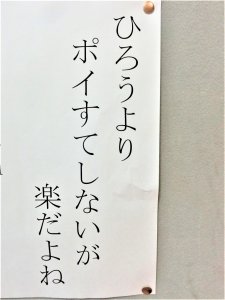 ひろうより
ポイすてしないが
楽だよね